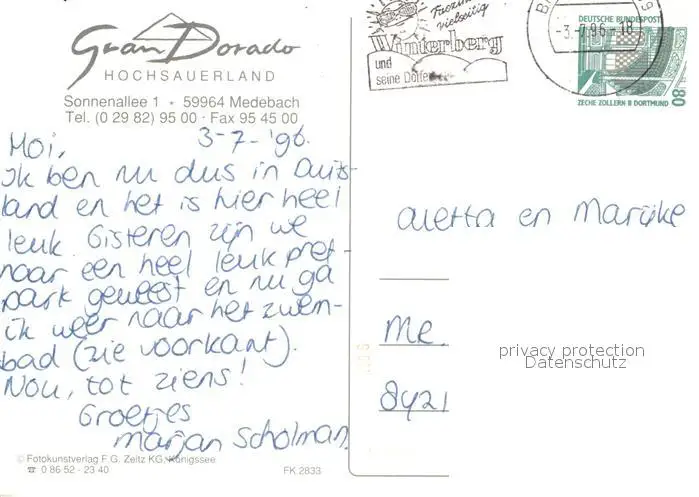 Gran Dorado
HOCHSAUERLAND
Sonnenallee 1 • 59964 Medebach
Tel. (0 29 82) 95 00 · Fax 95 45 00
3-7-'96.
Moi,
Ik ben nu dus in Duits-
land en het is hier heel
leuk. Gisteren zijn we
naar een heel leuk pret-
park geweest en nu ga
ik weer naar het zwem-
bad (zie voorkant).
Nou, tot ziens!
Groetjes
Marjan Scholman
© Fotokunstverlag F.G. Zeitz KG, Königssee
☎ 0 86 52 - 23 40
FK 2833
vielseitig
Winterberg
und
seine Dörfer
-3.-7.96-18
DEUTSCHE BUNDESPOST
80
ZECHE ZOLLERN II DORTMUND
Aletta en Marijke
MR.
8421
privacy protection
Datenschutz